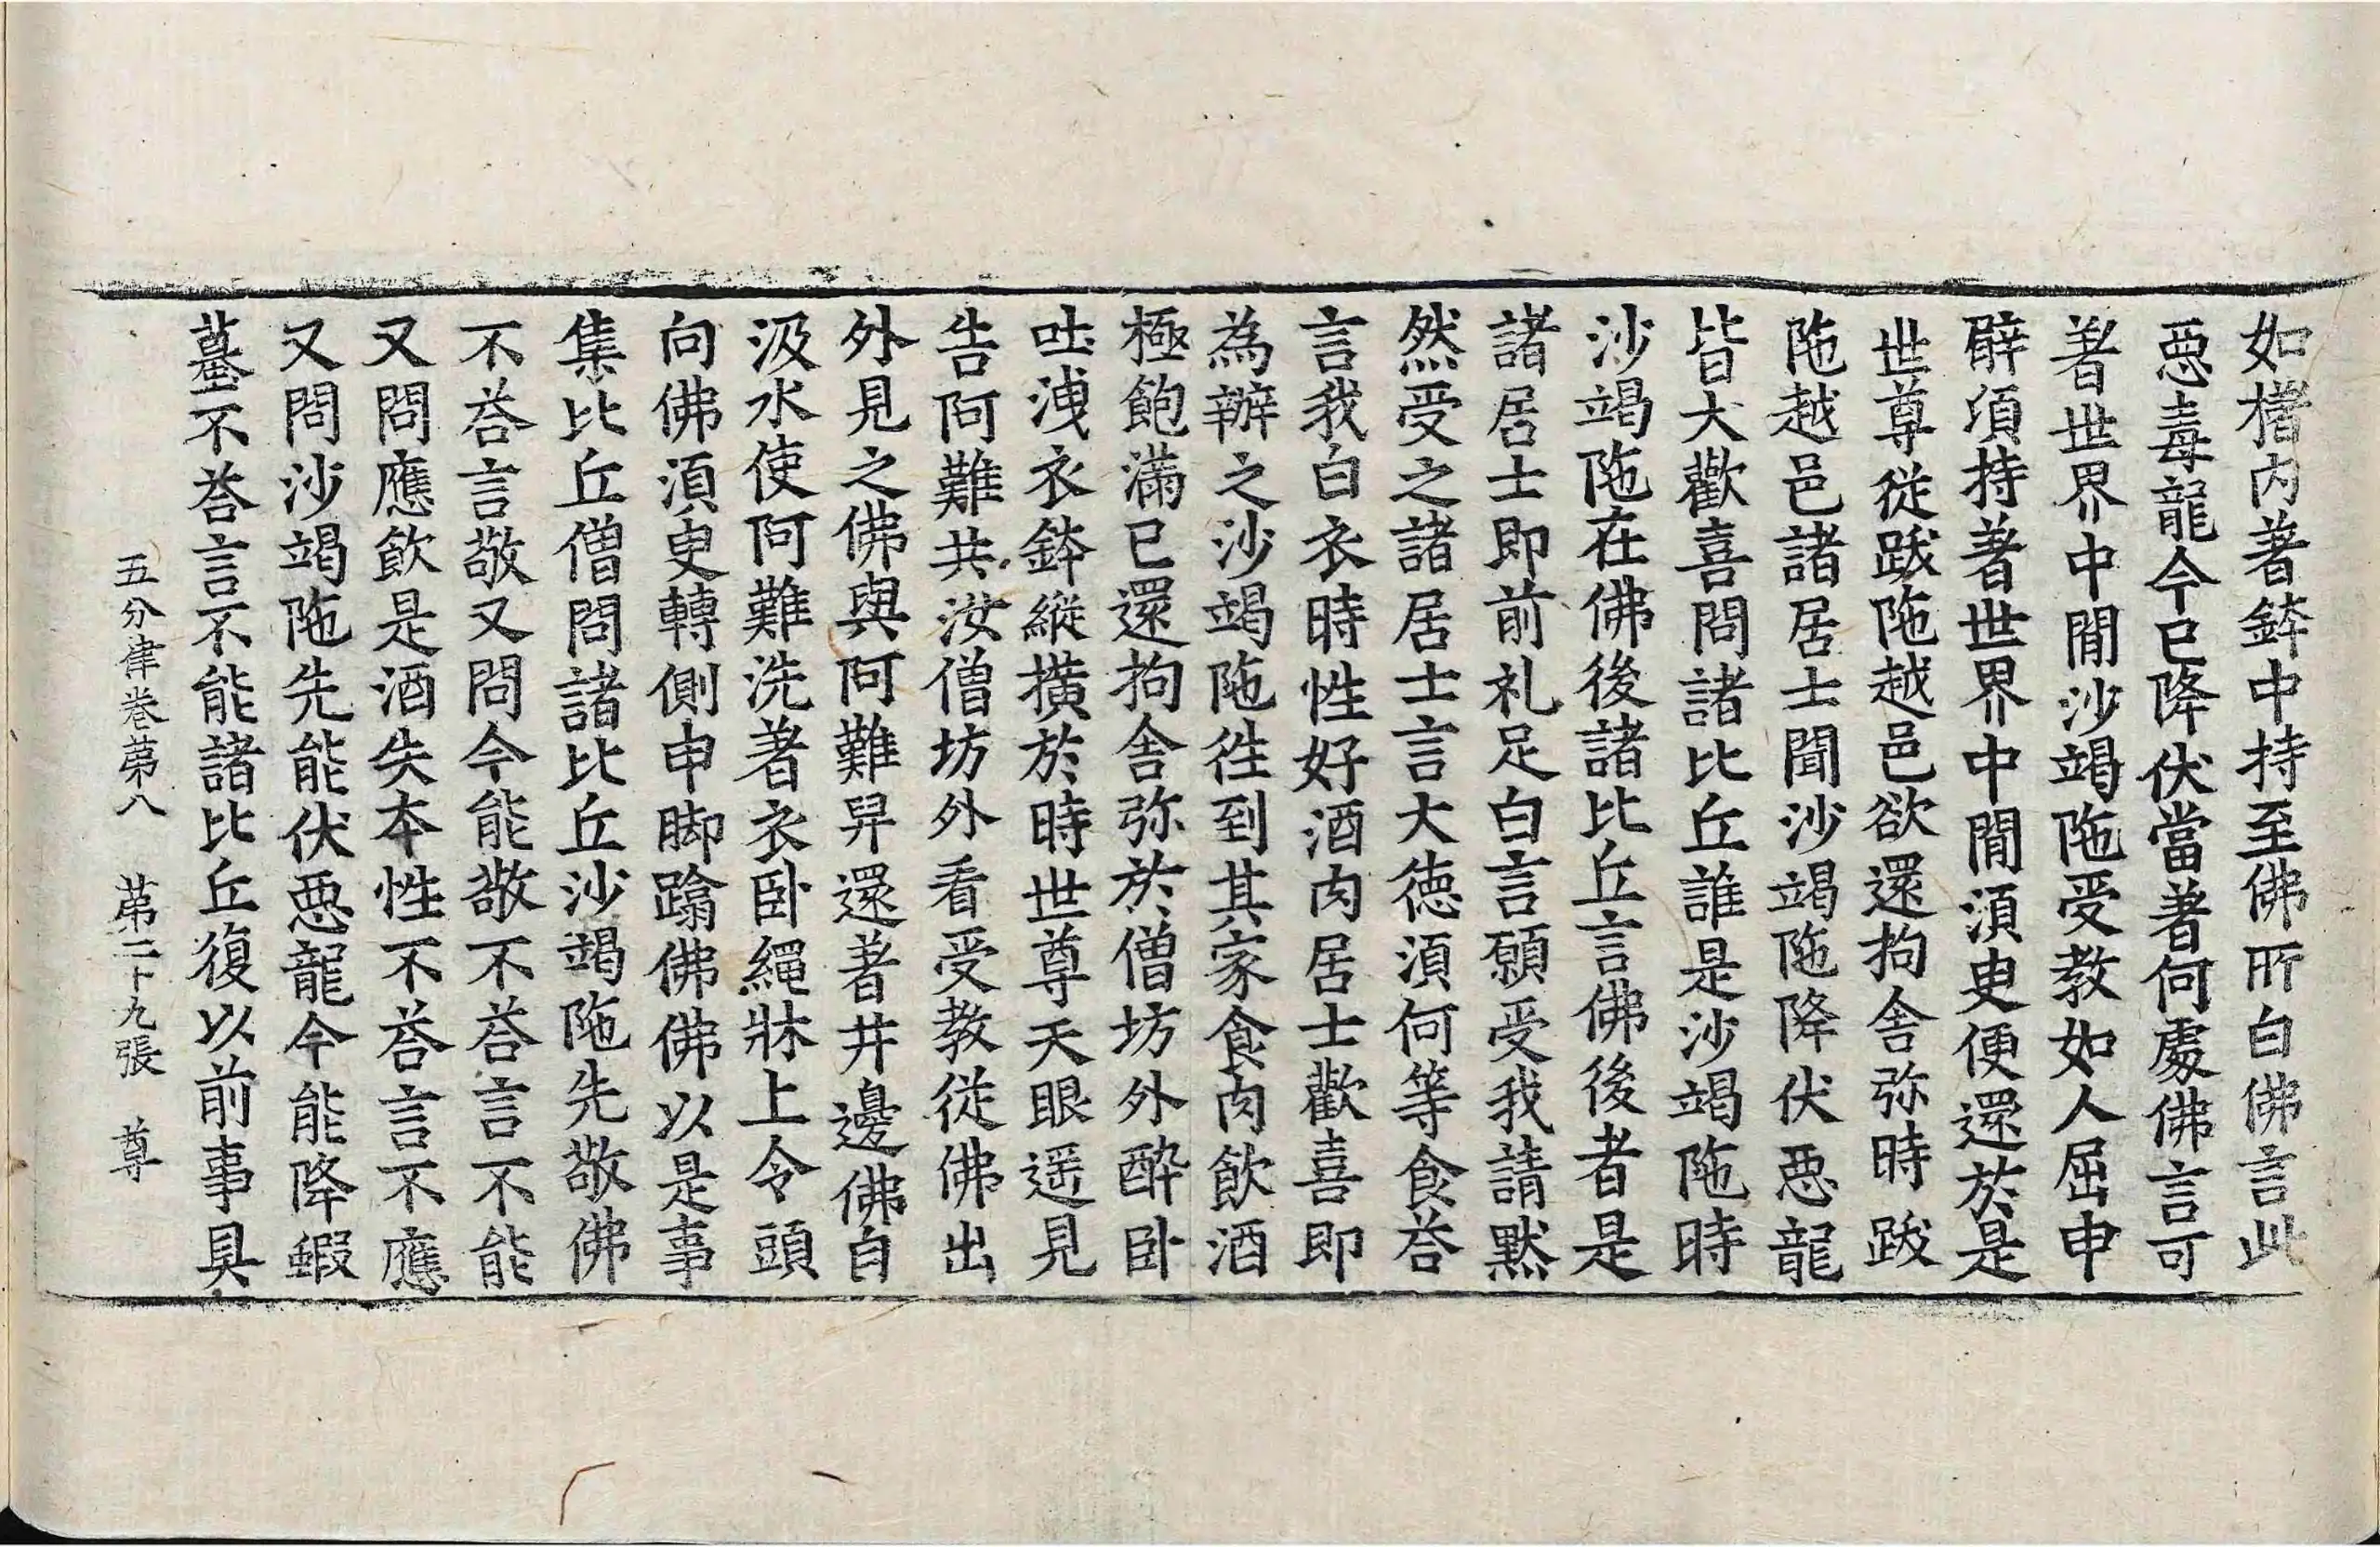 如櫡内著鉢中持至佛所白佛言此
惡毒龍今已降伏當著何處佛言可
著世界中閒沙竭陁受教如人屈申
臂湏持著世界中閒湏臾便還於是
世尊從跋陁越邑欲還拘舍弥時跋
陁越邑諸居士聞沙竭陁降伏惡龍
皆大歡喜問諸比丘誰是沙竭陁時
沙竭陁在佛後諸比丘言佛後者是
諸居士即前礼足白言願受我請黙
然受之諸居士言大德湏何等食荅
言我白衣時性好酒肉居士歡喜即
為辦之沙竭陁往到其家食肉飲酒
極飽滿已還拘舍弥於僧坊外醉卧
吐洩衣鉢縱撗於時世尊天眼遥見
告阿難共汝僧坊外看受教從佛出
外見之佛與阿難舁還著井邊佛自
汲水使阿難洗著衣卧繩牀上令頭
向佛湏臾轉側申脚蹹佛佛以是事
集比丘僧問諸比丘沙竭陁先敬佛
不荅言敬又問今能敬不荅言不能
又問應飲是酒失本性不荅言不應
又問沙竭陁先能伏惡龍今能降蝦
蟇不荅言不能諸比丘復以前事具
五分律卷第八 第二十九張 尊